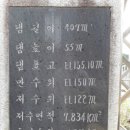 댐길이 407M
댐높이 55M
댐표고 El.155.10M
만수위 El.150M
저수위 El.122M
저수면적 7.834KM²